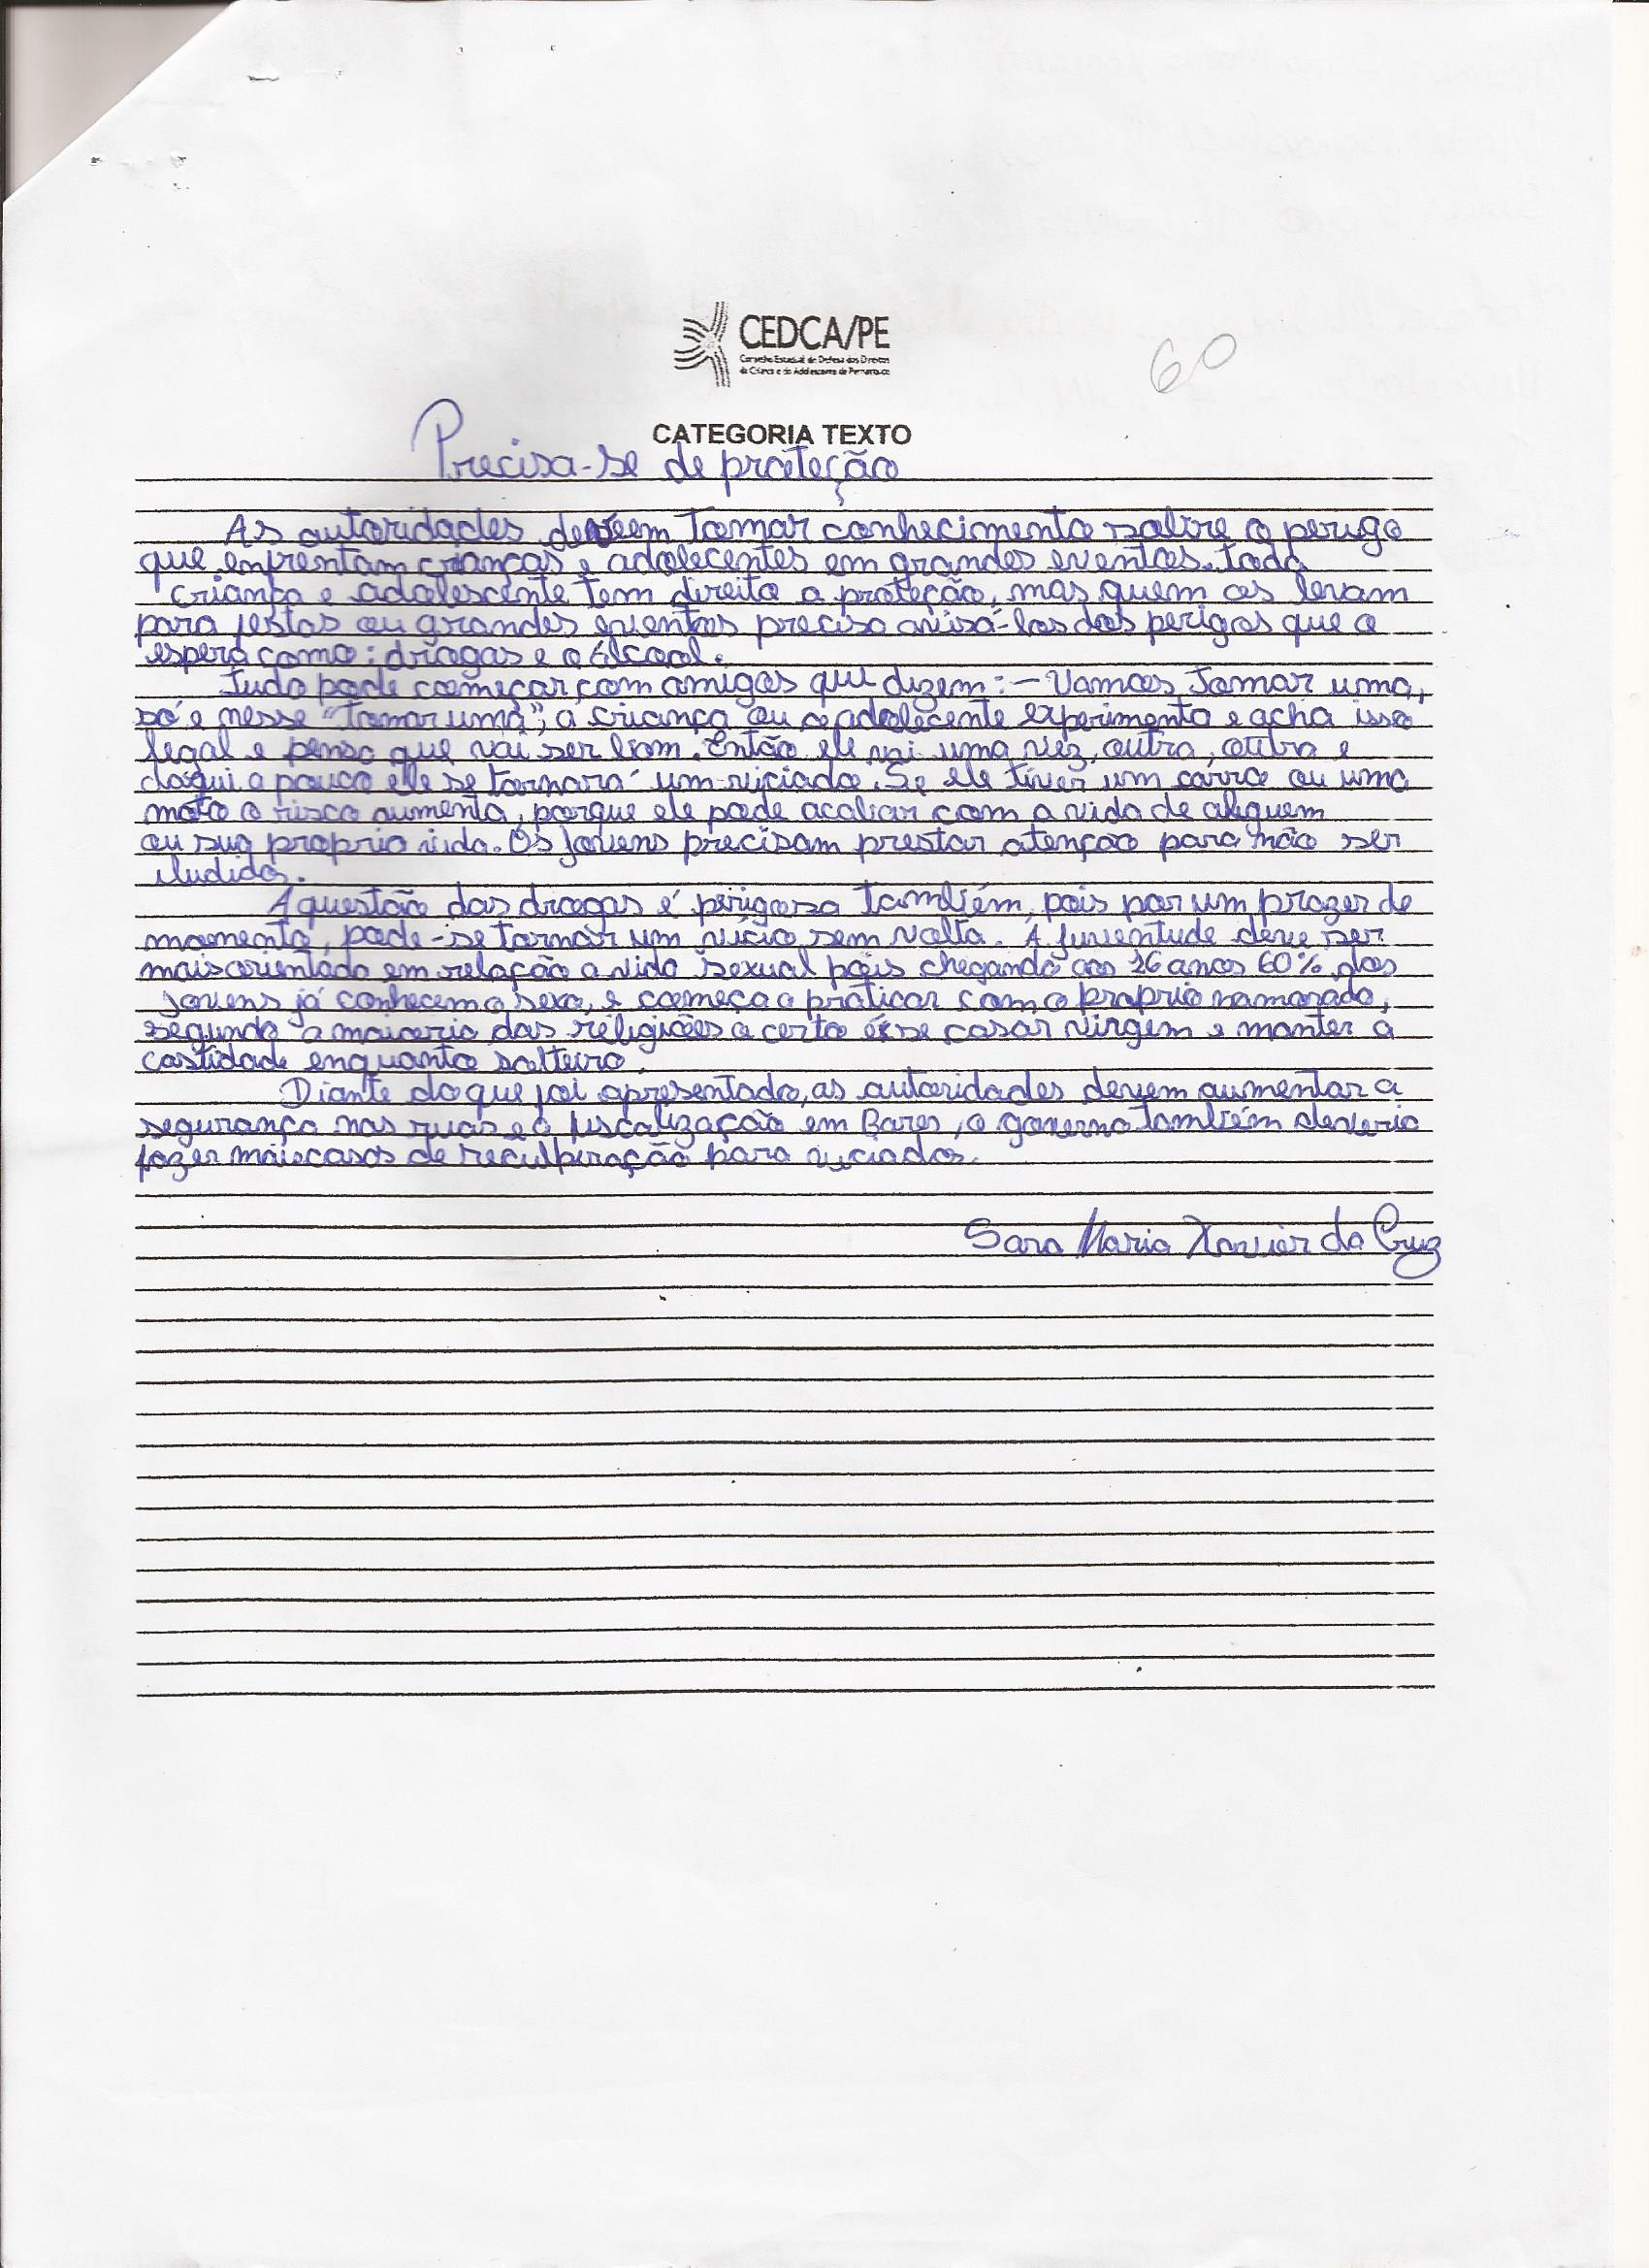 CEDCA/PE
Conselho Estadual de Defesa dos Direitos
da Criança e do Adolescente de Pernambuco
60
CATEGORIA TEXTO
Precisa-se de proteção
As autoridades devem tomar conhecimento sobre o perigo
que enfrentam crianças e adolecentes em grandes eventos. toda
criança e adolescente tem direito a proteção, mas quem os levam
para festas ou grandes eventos precisa avisá-los dos perigos que o
espera como: drogas e o álcool.
Tudo pode começar com amigos que dizem: - Vamos Tomar uma,
só e nesse "Tomar uma", a criança ou o adolecente experimenta e acha isso
legal e pensa que vai ser bom. Então ele vai uma vez, outra, outra e
daqui a pouco ele se tornará um viciado. Se ele tiver um carro ou uma
moto o risco aumenta, porque ele pode acabar com a vida de alguem
ou sua propria vida. Os Jovens precisam prestar atenção para não ser
iludidos.
A questão das drogas é perigosa também, pois por um prazer de
momento, pode-se tornar um vício sem volta. A juventude deve ser
mais orientada em relação a vida sexual pois chegando aos 16 anos 60% dos
Jovens já conhecem o sexo, e começa a praticar com o proprio namorado,
segundo a maioria das religiões o certo é se casar virgem e manter a
castidade enquanto solteiro.
Diante do que foi apresentado, as autoridades devem aumentar a
segurança nas ruas e a fiscalização em Bares, o governo também deveria
fazer mais casas de reculpiração para viciados.
Sara Maria Xavier da Cruz